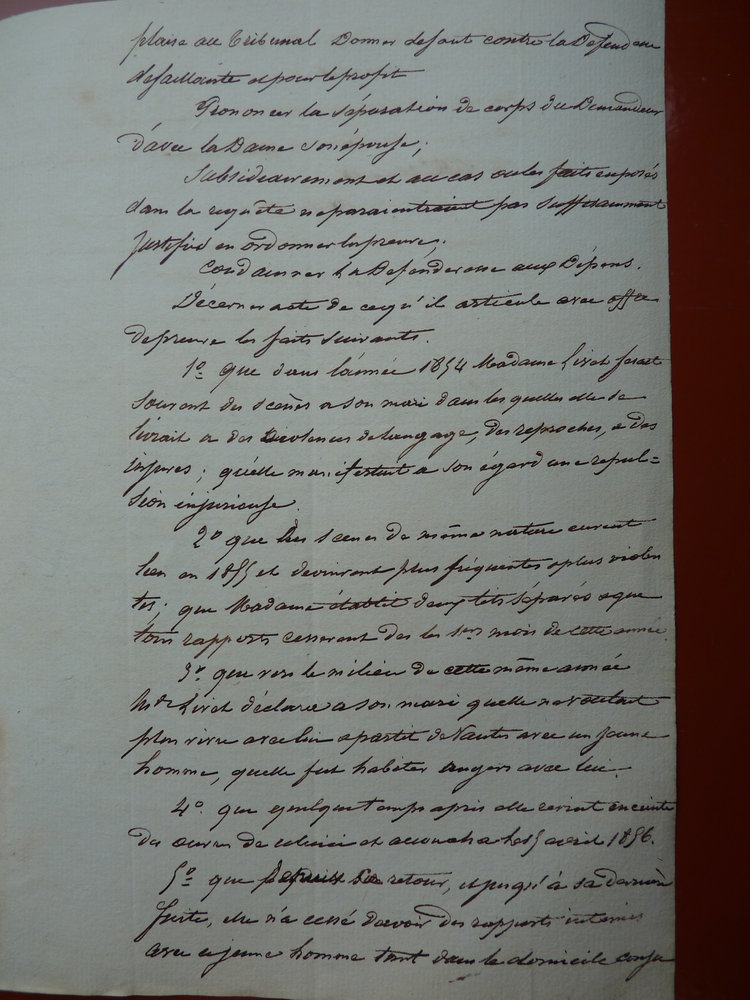 plaise au Tribunal Donner defaut contre la Défenderesse
defaillante et pour le profit
Prononcer la séparation de corps du Demandeur
d'avec la Dame son épouse;
Subsidiairement et au cas ou les faits exposés
dans la requête ne paraientraient pas suffisamment
justifiés en ordonner la preuve;
Condamner la Défenderesse aux Dépens.
Décerner acte de ce qu'il articule avec offre
de preuve les faits suivants.
1o que dans l'année 1854 Madame Livet faisait
souvent des scènes a son mari dans les quelles elle se
livrait a des violences de langage, des reproches, a des
injures; quelle manifestait a son égard une repul=
sion injurieuse.
2o que des scenes de même nature eurent
lieu en 1855 et devinrent plus fréquentes et plus violen
tes; que Madame établit deux lits séparés et que
tous rapports cesserent des les 1ers mois de cette année.
3o que vers le milieu de cette même année
Mde Livet déclara a son mari quelle ne voulait
plus vivre avec lui et partit de Nantes avec un jeune
homme, quelle fut habiter angers avec lui.
4o que quelque temps après elle revint enceinte
des œuvres de celui ci et accoucha le 5 avril 1856.
5o que depuis son retour, et jusqu'à sa dernière
fuite, elle n'a cessé d'avoir des rapports intimes
avec ce jeune homme tant dans le domicile conju